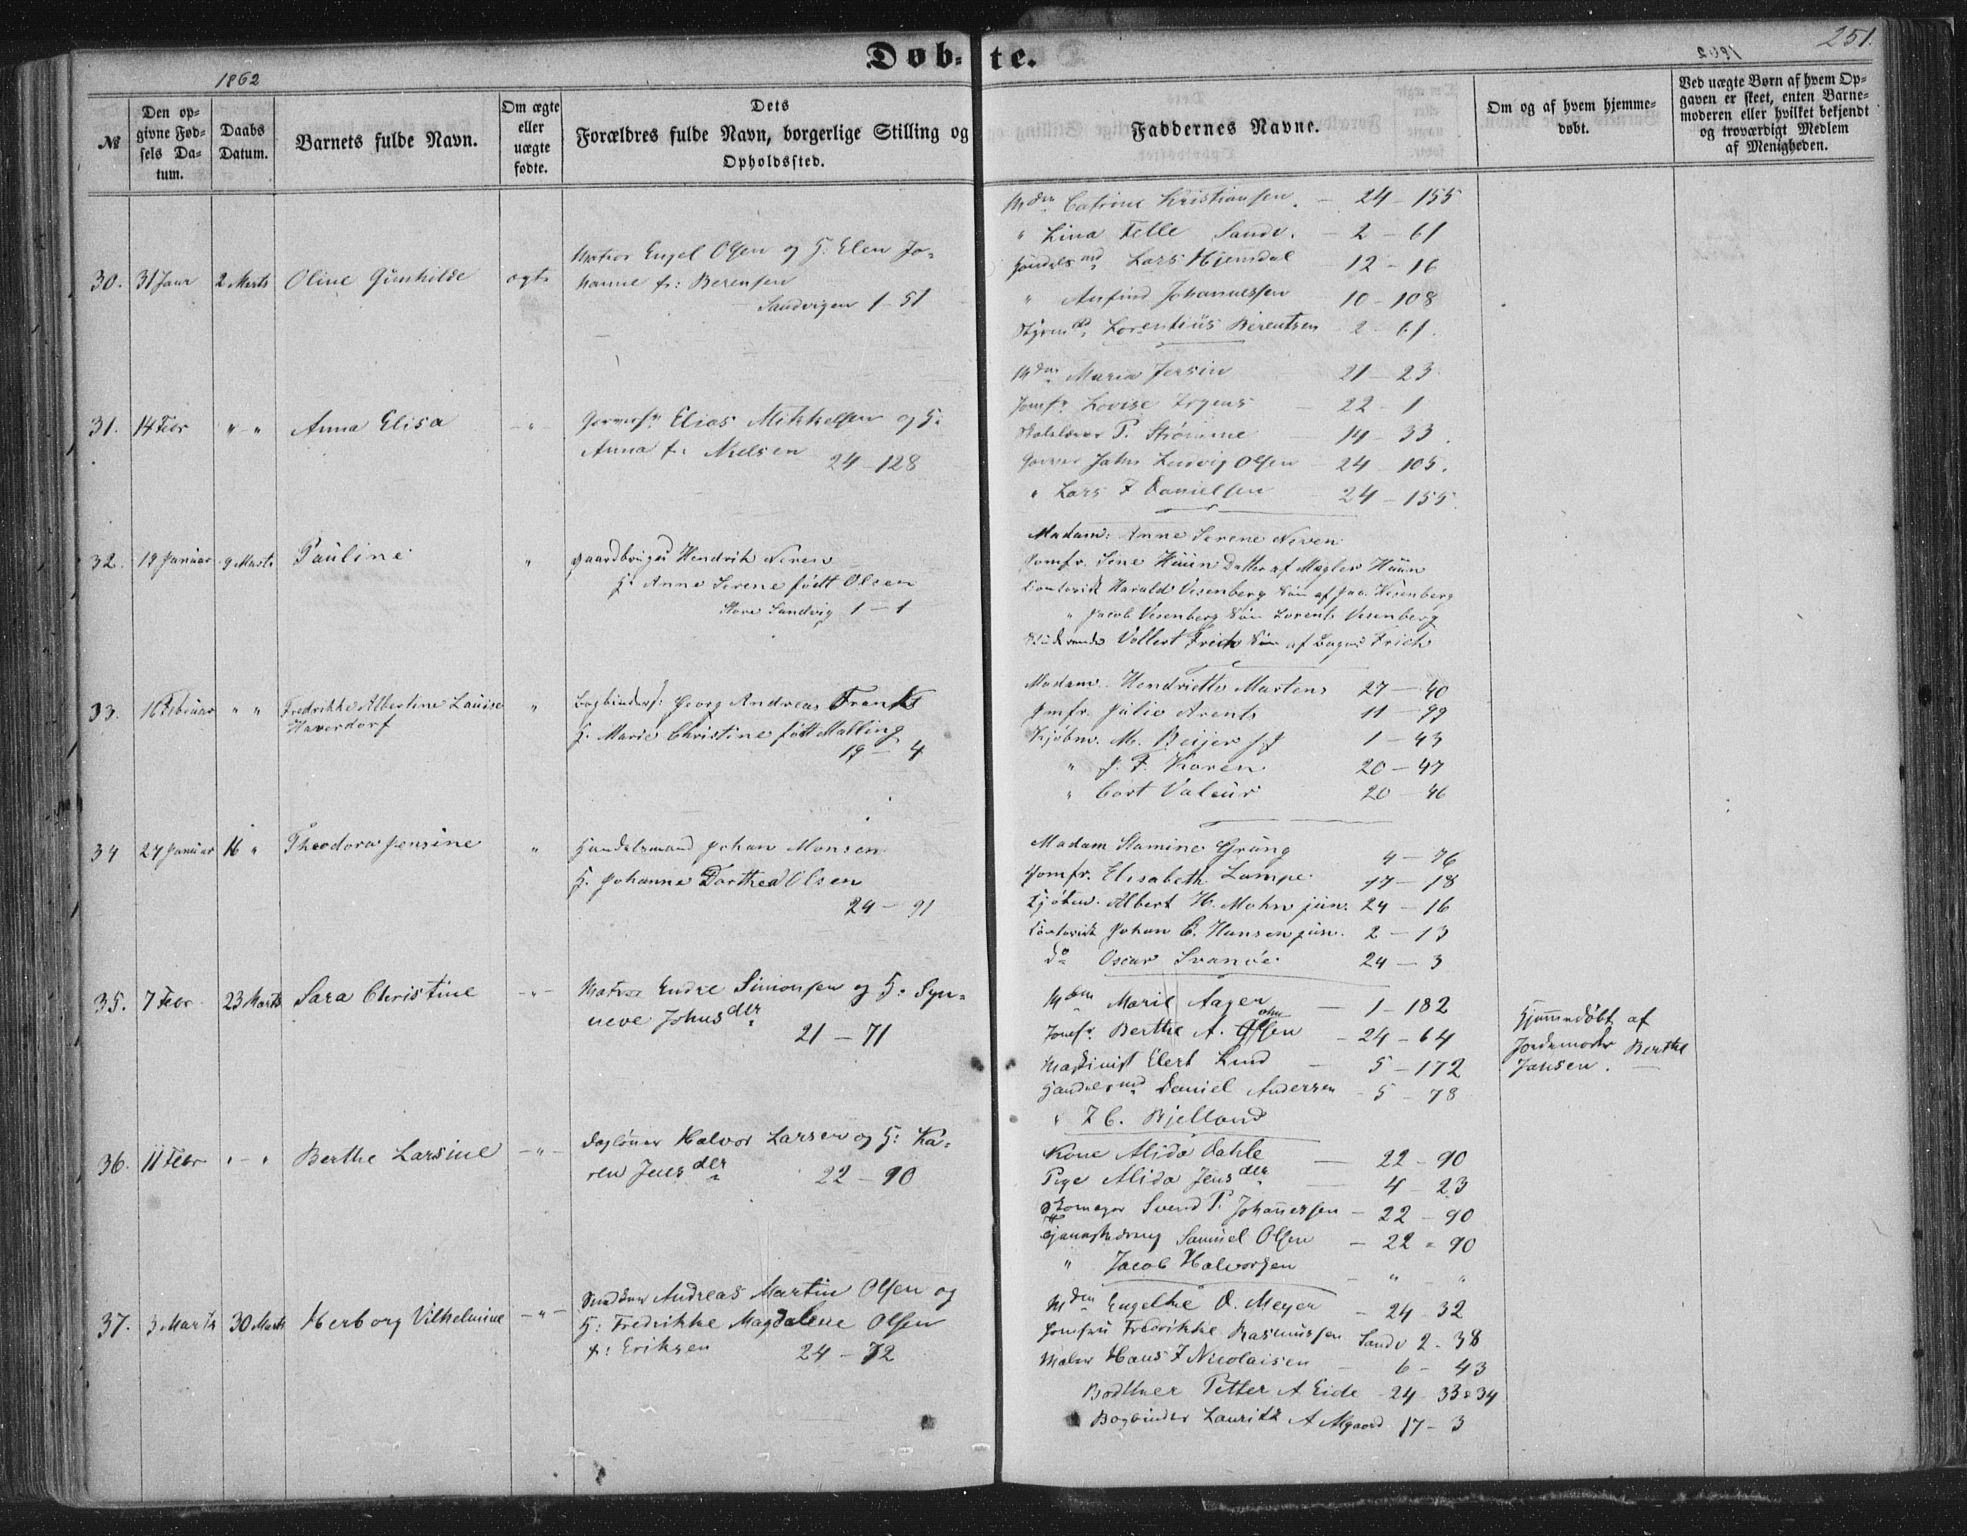 251.
Døb-te.
1862
№
Den op-
givne Fød-
sels Da-
tum.
Daabs
Datum.
Barnets fulde Navn.
Om ægte
eller
uægte
fødte.
Dets
Forældres fulde Navn, borgerlige Stilling og
Opholdssted.
Faddernes Navne.
Om og af hvem hjemme-
døbt.
Ved uægte Børn af hvem Op-
gaven er skeet, enten Barne-
moderen eller hvilket bekjendt
og troværdigt Medlem
af Menigheden.
30. 31 Janr 2 Marts Oline Gunhilde ægte
Matros Engel Olsen og H: Elen Jo-
hanne f: Berensen
Sandvigen 1-51
Mdm Catrine Kristiansen. - 24-155
" Lina Telle Sandv. - 2-61
Handelsmd Lars Hjemdal - 12-16
" Anfind Johannessen 10-108
Styrmd Lorentius Berentsen 2-61.
31. 14 Febr " " Anna Elisa - " -
Elias Mikkelsen og H:
Anna f: Nielsen 24-128
Mdm Maria Jersin 21-23
Jomfr. Lovise Irgens - 22-1
Skolelærer P. Strømme - 14-33.
John Ludvig Olsen - 24-105.
" Lars J Danielsen - 24-155
32. 19 Januar 9 Marts Pauline "
Gaardbruger Hendrik Neven
H. Anne Serene født Olsen
Store Sandvig 1-1
Madam: Anne Serene Neven
Jomfr. Sine Huun Datter af Mægler Huun
Contorist Harald Vesenberg Søn af Jac. Vesenberg
" Jacob Vesenberg Søn Lorents Vesenberg
Studerende Vollert Frich Søn af Frich
33. 16 Februar " " Fredrikke Albertine Lauise
Haverdorf "
Bogbinders: Georg Andreas Frank
H. Marie Christine født Malling
19-4
Madam. Hendriette Martens 27-40
Jmfr. Julie Arents 11-99
Kjøbm. M. Beijer 1-43
" J. F. Koren. 20-47
" Cort Valeur 20-46
34 27 Januar 16 " Theodora Jensine "
Handelsmand Johan Monsen
H. Johanne Dorthea Olsen
24-91
Madam Stamine Grung 4-76
Jomfr. Elisabeth Lampe. 17-18
Kjøbm. Albert H. Mohn jun. 24-16
Contorist Johan C. Hansen jun. 2-13
do Oscar Svanøe 24-3
35. 7 Febr. 23 Marts Sara Christine - " -
Matros Endre Simonsen og H: Syn-
neve Johnsder
21-71
Mdm Marie Aager - 1-182
Jomfr Berthe A. Olsen - 24-64
Maskinist Elert Lund - 5-172
Handelsmd Daniel Andersen - 5-78
" J C. Bjelland
Hjemmedøbt af
Jordemoder Berthe
Jansen. -
36. 11 Febr " - " Berthe Larsine - " -
Dagløner Halvor Larsen og H: Ka-
ren Jensder
22-90
Kone Alida Dahle - 22-90
Pige Alida Jensder - 4-23
Skomager Svend P. Johannessen - 22-90
Samuel Olsen - 22-90
" Jacob Halvorsen - " - "
37. 3 Marts 30 Marts Herborg Vilhelmine - " -
Snedker Andreas Martin Olsen og
H: Fredrikke Magdalene Olsen
f: Eriksen 24-72
Mdm Engelke D. Meyer - 24-32
Jomfru Fredrikke Rasmussen Sandv 2-38
Maler Hans J Nicolaisen - 6-43
Bødtker Petter A Eide - 24-33&34
Bogbinder Lauritz A Algaard 17-3